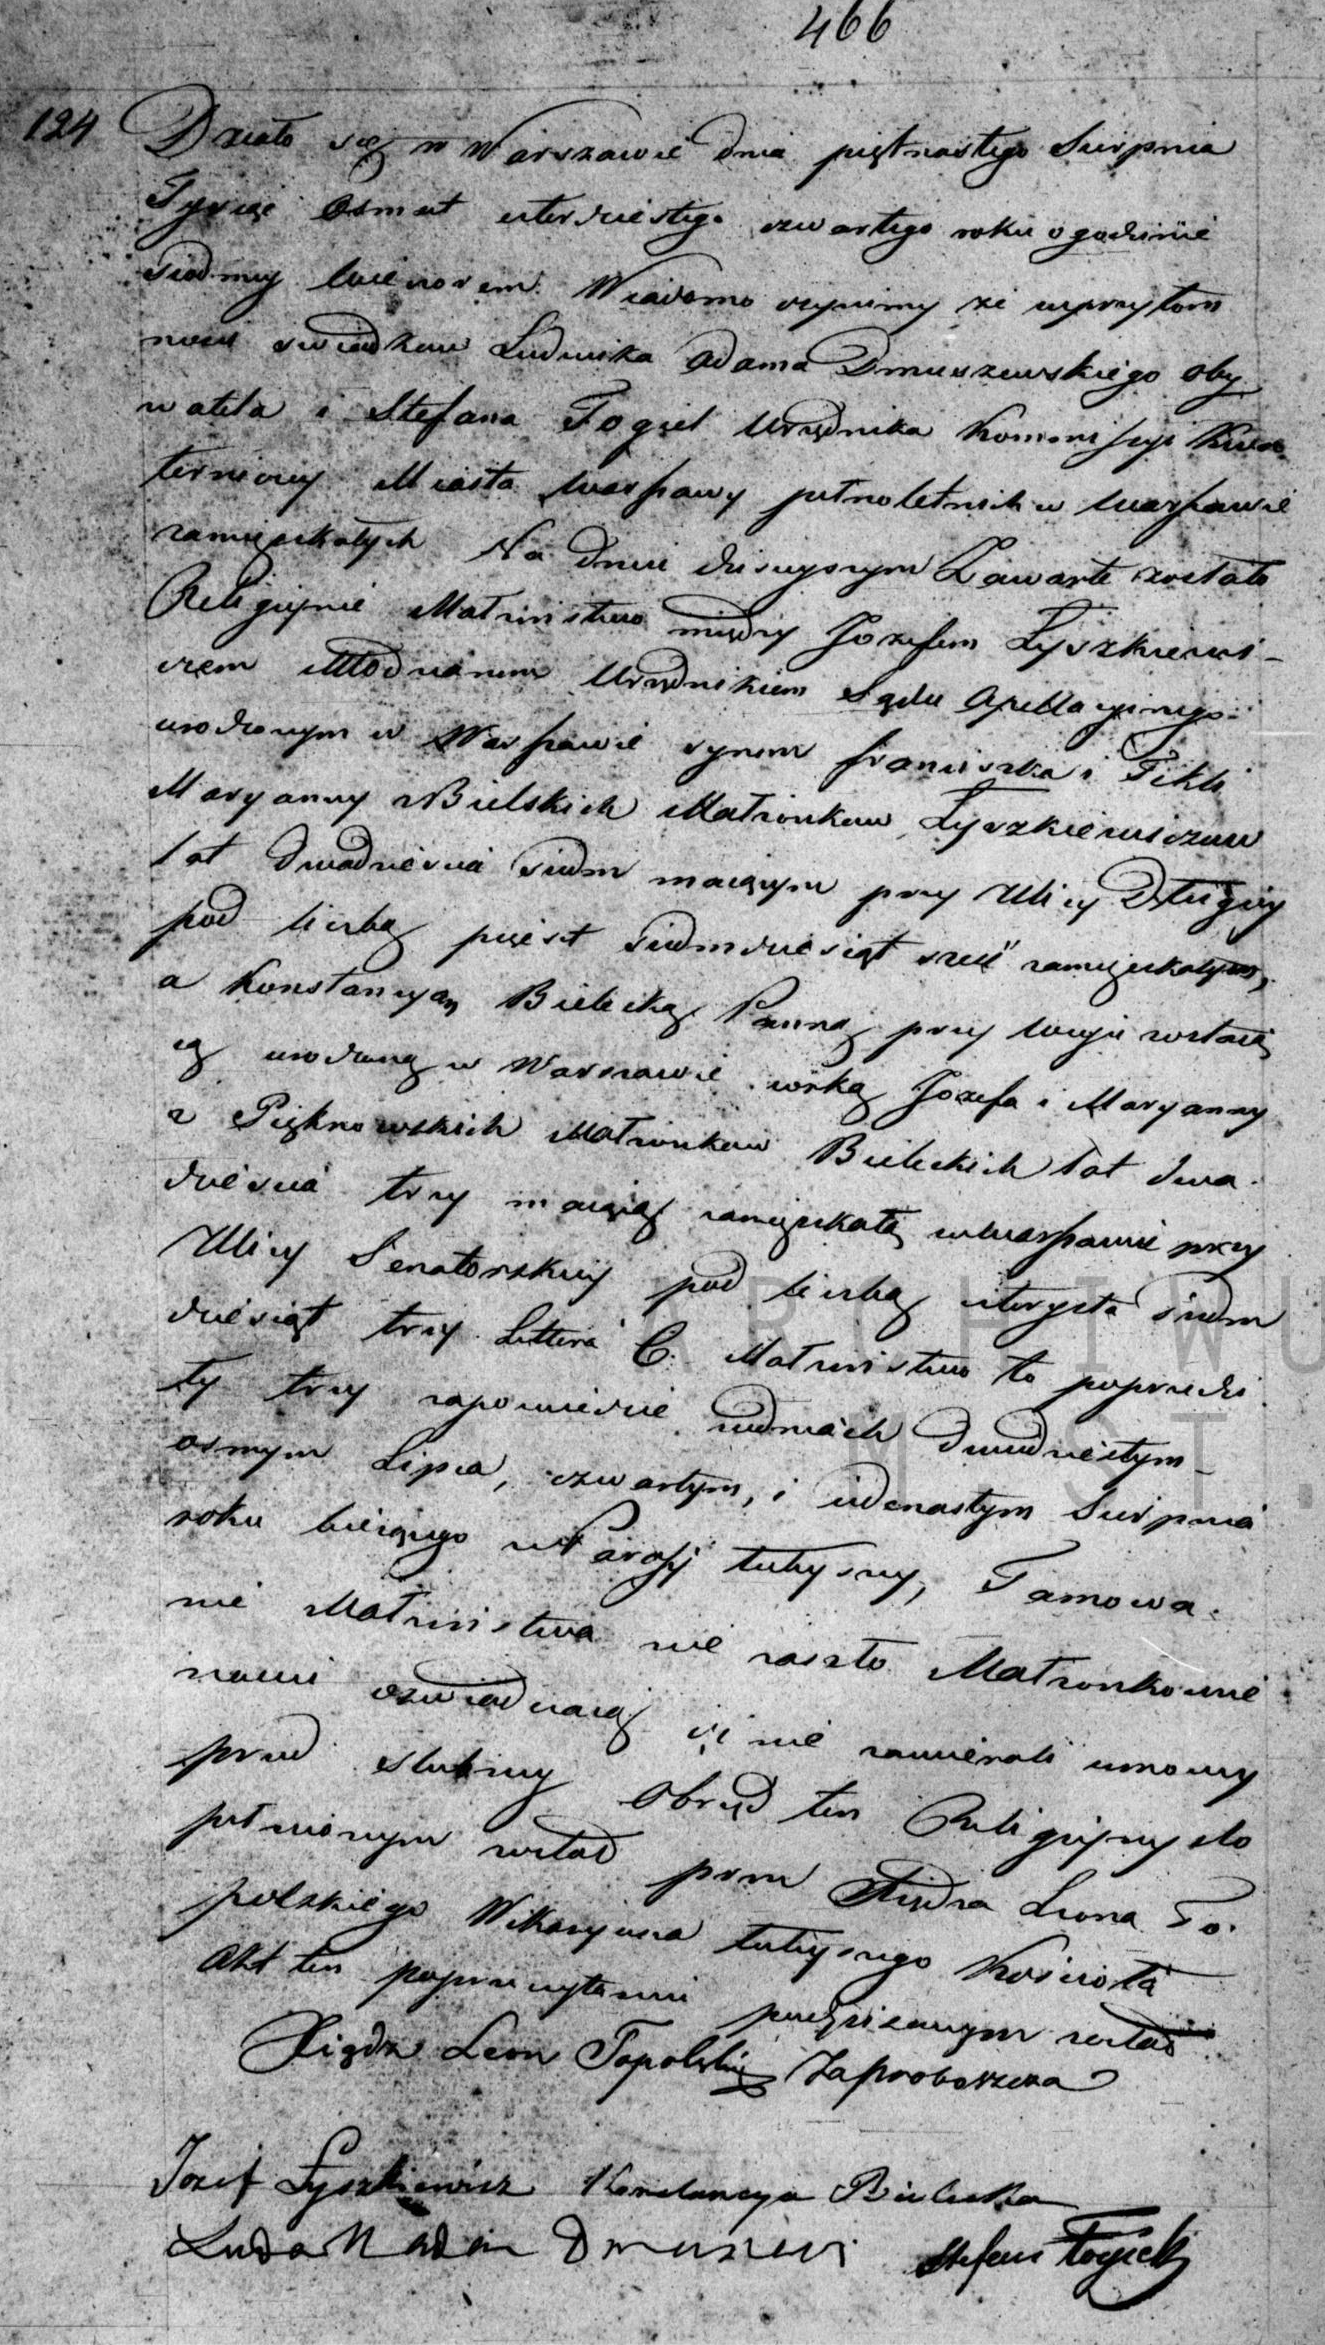 466
124 Działo się w Warszawie dnia piętnastego Sierpnia
Tysiąc Osmset czterdziestego czwartego roku o godzinie
siodmey wieczorem. Wiadomo czynimy że wprzytom
ności swiadkow Ludwika Adama Dmuszewskiego oby
watela i Stefana Urzędnika Kommissyi Kwa
terniczey Miasta Warszawy pełnoletnich w Warszawie
zamieszkałych Na dniu dzisieyszym Zawarte zostało
Religijnie Małżeństwo między Jozefem Łyszkiewi-
czem Młodzianem Urzędnikiem Sądu Apellacyinego
urodzonym w Warszawie synem Franciszka i Tekli
Maryanny z Bielskich Małżonkow Łyszkiewiczow
lat dwadzieścia siedm maiącym przy Ulicy Długiey
pod liczbą pięset siedmdziesiąt sześć zamieszkałym,
a Konstancyą Bielecką Panną przy wuju zostaią
cą urodzoną w Warszawie corką Jozefa i Maryanny
z Pięknowskich Małżonkow Bieleckich lat dwa
dzieścia trzy maiącą zamieszkałą w Warszawie przy
Ulicy Senatorskiey pod liczbą czterysta siedm
dziesiąt trzy Littera C. Małżeństwo to poprzedzi
ły trzy zapowiedzie w dniach dwudziestym
osmym Lipca, czwartym, i iedenastym Sierpnia
roku bieżącego w Parafij tuteyszey, Tamowa
nie Małżeństwa nie zaszło Małżonkowie
nowi oswiadczaią iż nie zawierali umowy
przed slubney Obrzęd ten Religijny do
pełnionym został przez Xiędza Leona To
polskiego Wikaryusza tuteyszego Kościoła
Akt ten po przeczytaniu podpisanym został
Xiądz Leon Topolski Za Proboszcza
Jozef Łyszkiewicz Konstancya Bielecka
Ludwik Adam Dmuszewski Stefan